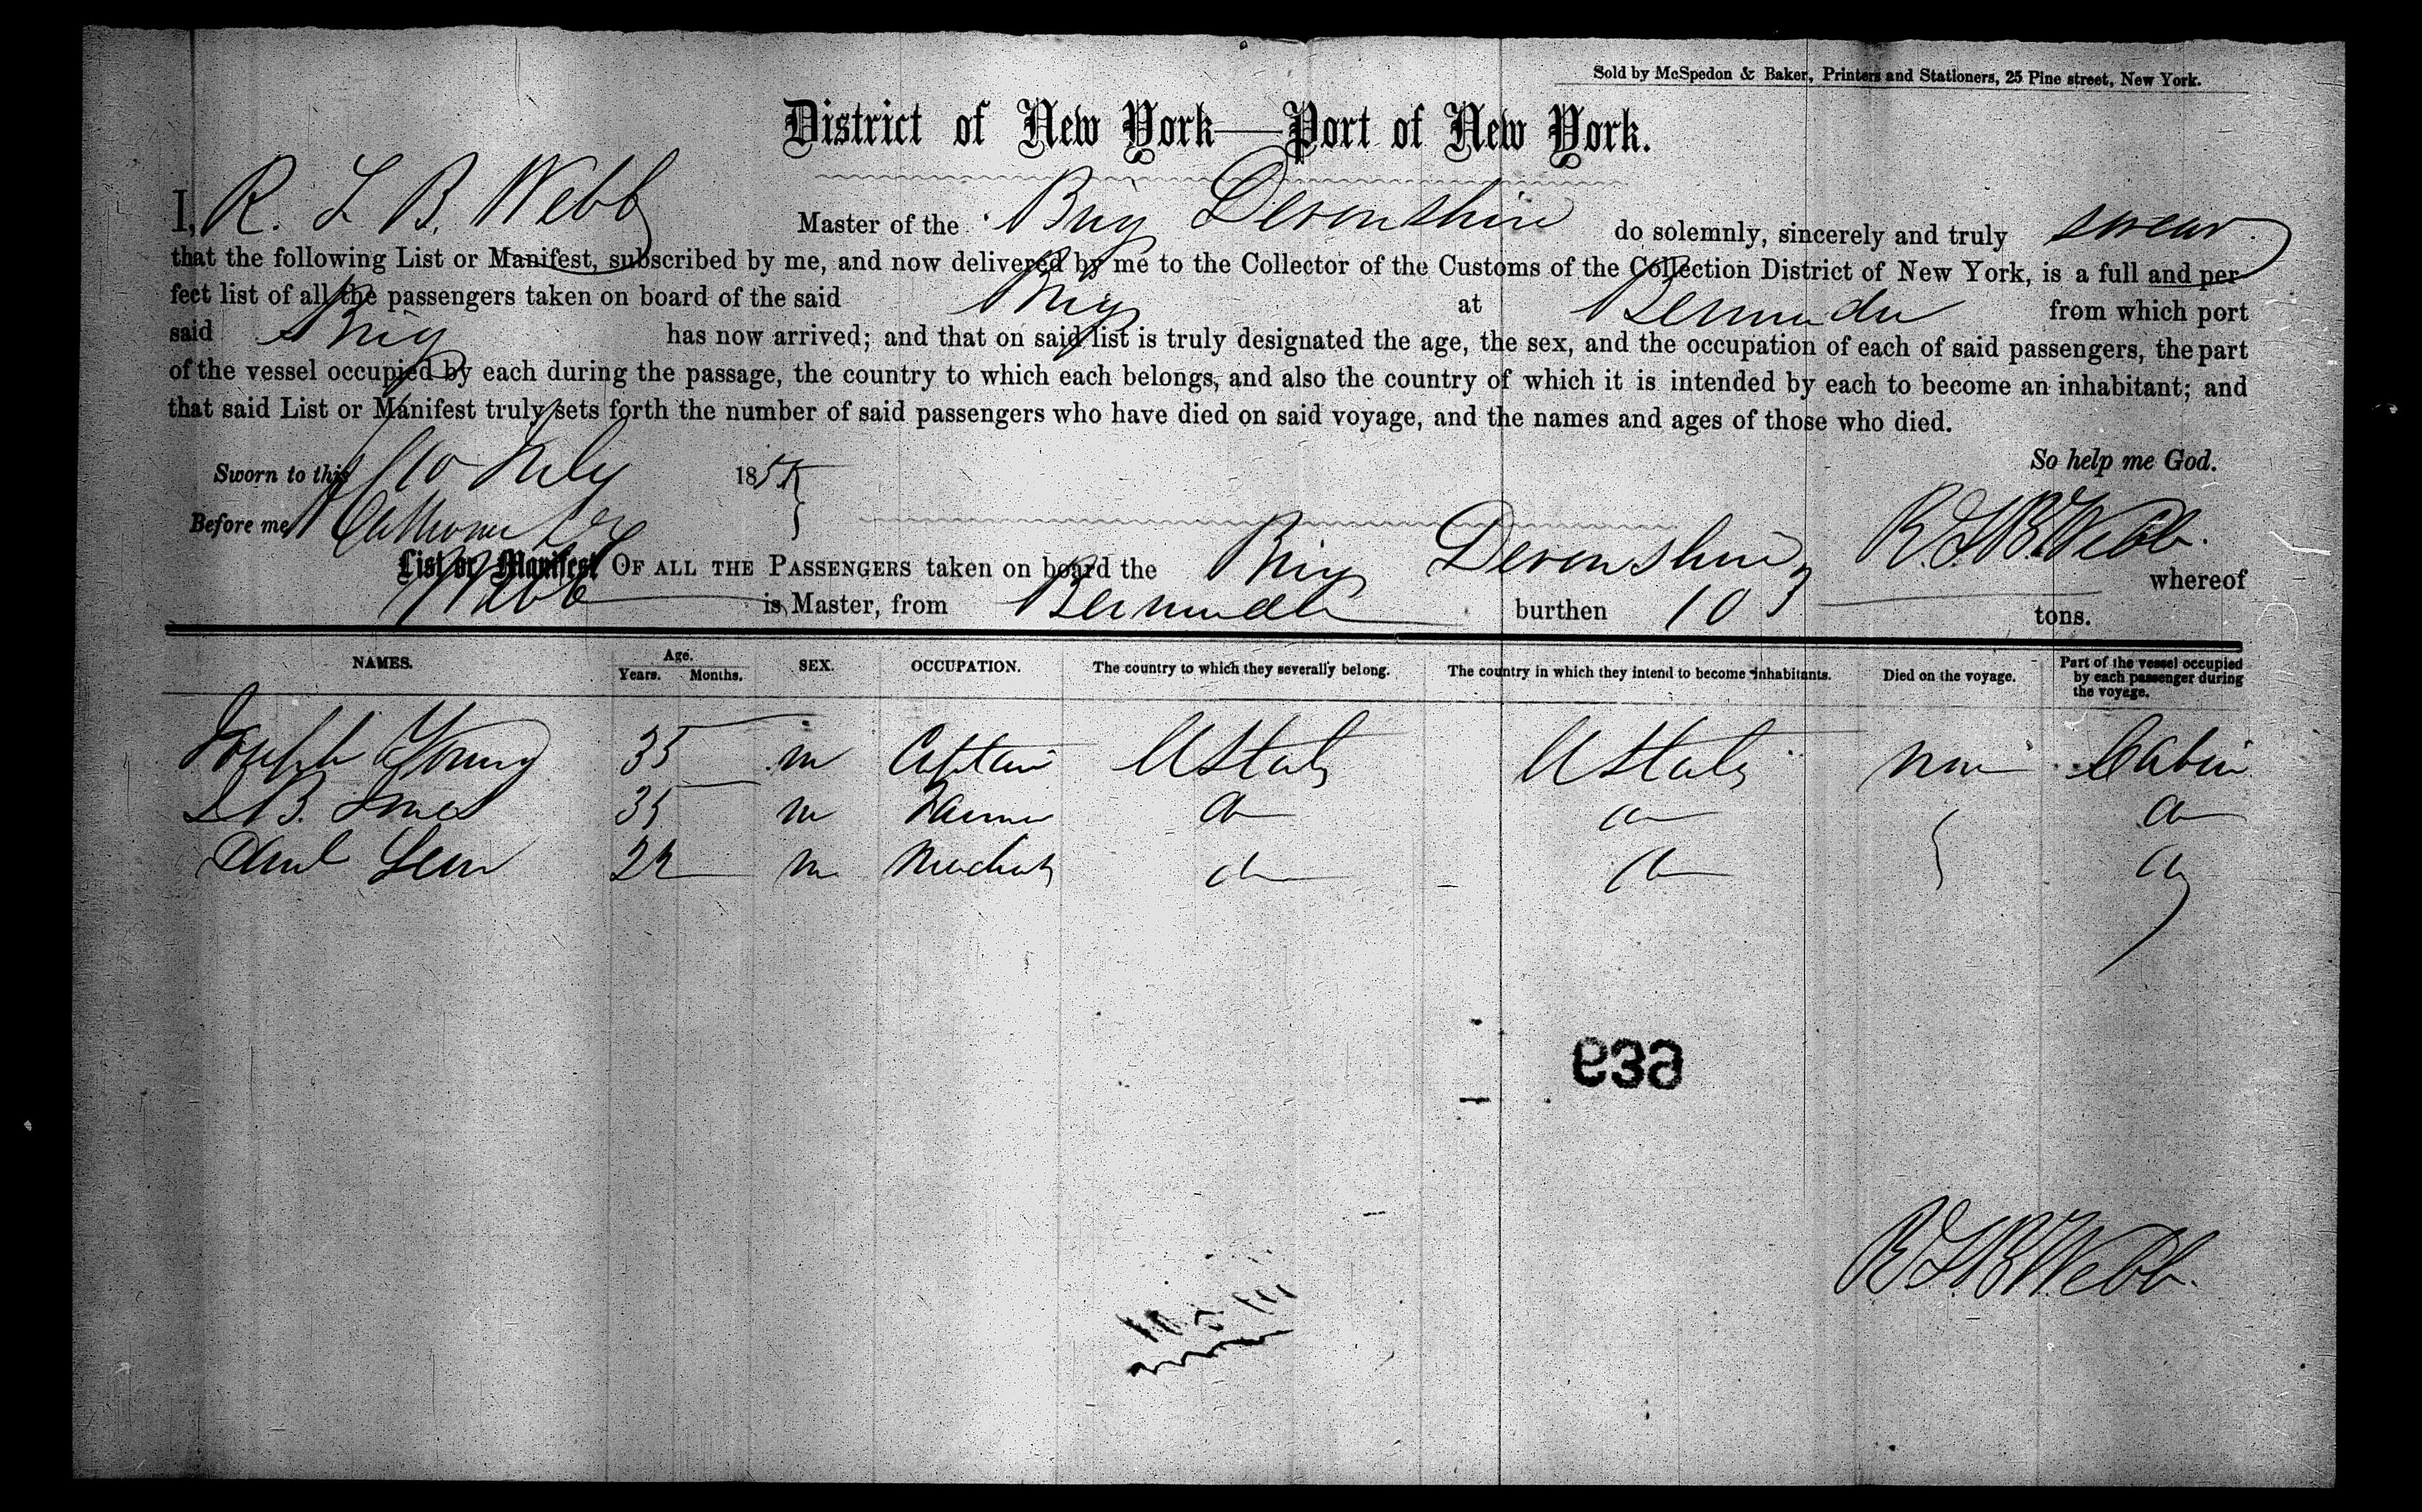 Sold by McSpedon & Baker, Printers and Stationers, 25 Pine street, New York.
District of New York—Port of New York.
I, R. L B. Webb Master of the Brig Devonshire do solemnly, sincerely and truly swear
that the following List or Manifest, subscribed by me, and now delivered by me to the Collector of the Customs of the Collection District of New York, is a full and per
fect list of all the passengers taken on board of the said Brig at Bermuda from which port
said Brig has now arrived; and that on said list is truly designated the age, the sex, and the occupation of each of said passengers, the part
of the vessel occupied by each during the passage, the country to which each belongs, and also the country of which it is intended by each to become an inhabitant; and
that said List or Manifest truly sets forth the number of said passengers who have died on said voyage, and the names and ages of those who died.
So help me God.
Sworn to this 10 July 185
Before me
R L B Webb.
List or Manifest OF ALL THE PASSENGERS taken on board the Brig Devonshire whereof
Webb is Master, from Bermuda burthen 103 tons.
NAMES. Age. Years. Months. SEX. OCCUPATION. The country to which they severally belong. The country in which they intend to become inhabitants. Died on the voyage. Part of the vessel occupied by each passenger during the voyage.
Joseph Young 35 m Captain U States U States Cabin
B. Jones 35 m Farmer
22 m
939
R L B Webb.